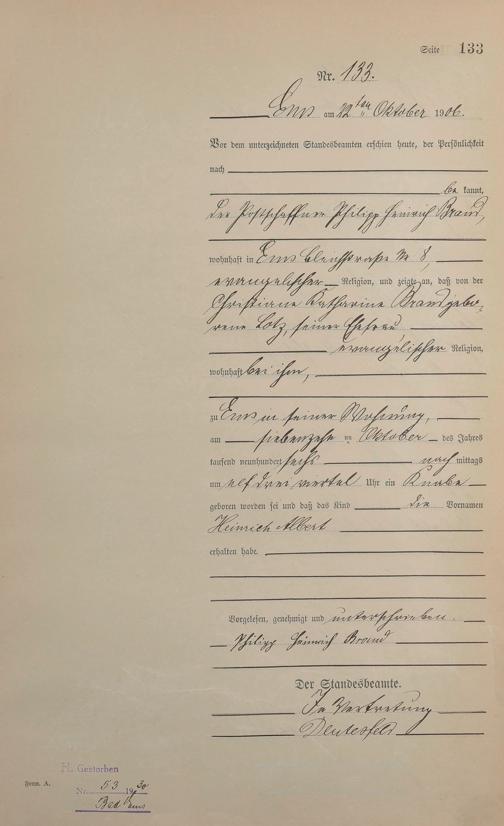 Seite 133
Nr. 133.
Ems am 22ten Oktober 1906.
Vor dem unterzeichneten Standesbeamten erschien heute, der Persönlichkeit
nach
be kannt,
der Postschaffner Philipp Heinrich Brand,
wohnhaft in Ems Bleichstraße No 8,
evangelischer Religion, und zeigte an, daß von der
Christiane Katharine Brand gebo-
rene Lotz, seiner Ehefrau
evangelischer Religion,
wohnhaft bei ihm,
zu Ems in seiner Wohnung,
am siebenzehnten Oktober des Jahres
tausend neunhundert sechs nach mittags
um elf drei viertel Uhr ein Knabe
geboren worden sei und daß das Kind die Vornamen
Heinrich Albert
erhalten habe.
Vorgelesen, genehmigt und unterschrieben.
Philipp Heinrich Brand
Der Standesbeamte.
In Vertretung
Gestorben
Form. A.
Nr. 53 1930
Bad Ems